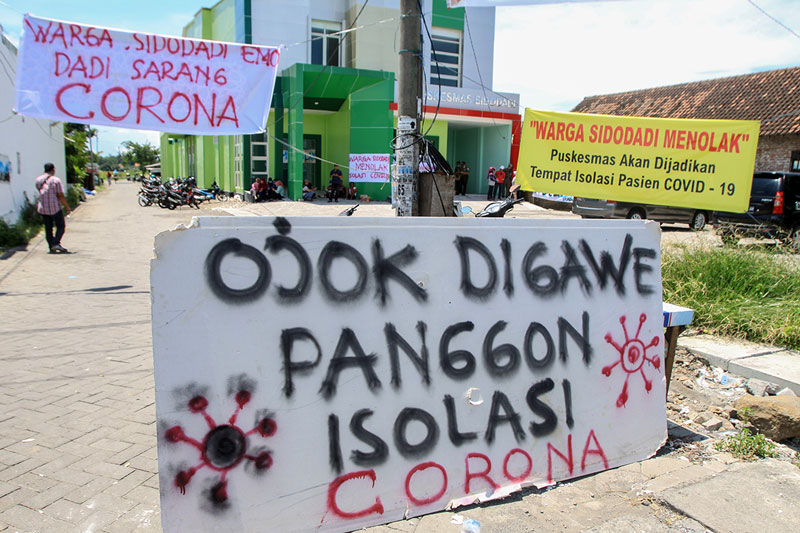 WARGA . SIDODADI EMO
DADI SARANG
CORONA
PUSKESMAS SIDODADI
WARGA SIDODADI
MENOLAK
ISOLASI CORONA
"WARGA SIDODADI MENOLAK"
Puskesmas Akan Dijadikan
Tempat Isolasi Pasien COVID - 19
OJOK DIGAWE
PANGGON
ISOLASI
CORONA